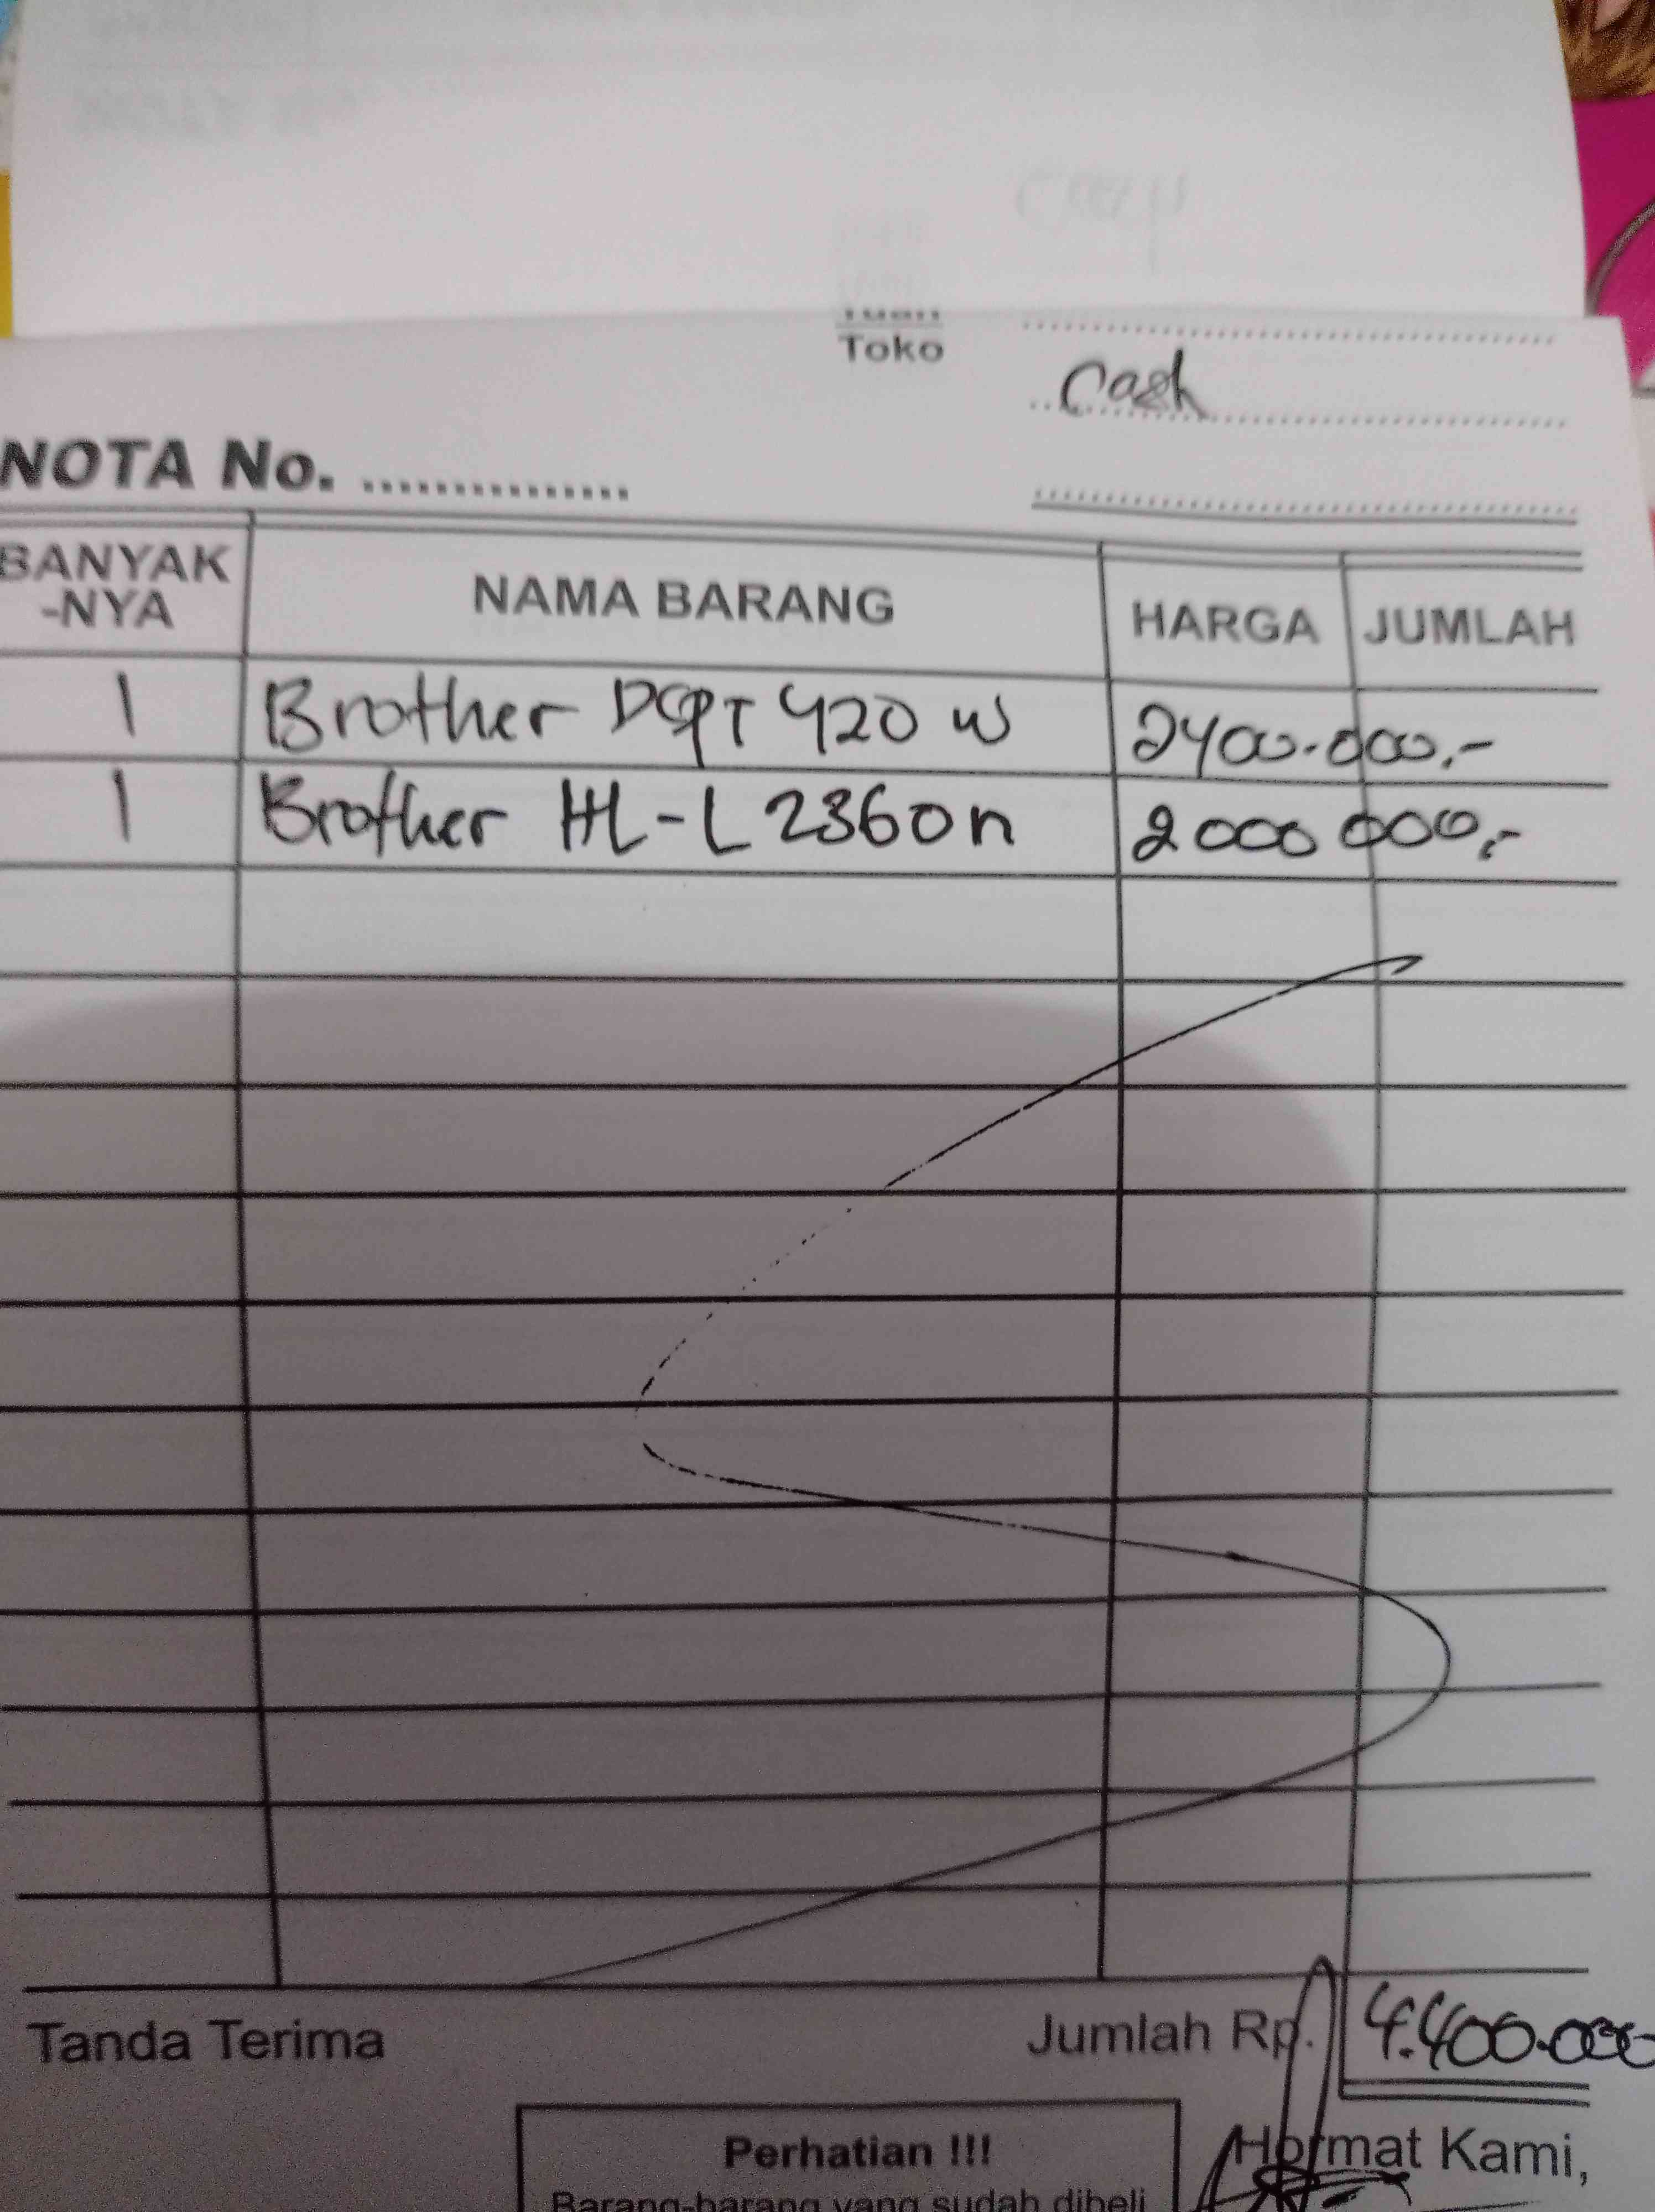 Toko
Cash
NOTA No. ...............
BANYAK
-NYA
NAMA BARANG
HARGA
JUMLAH
1 Brother DCPT 420 W 2400.000,-
1 Brother HL-L 2360n 2000 000,-
Tanda Terima
Jumlah Rp. 4.400.000
Perhatian !!!
Hormat Kami,
Barang-barang yang sudah dibeli